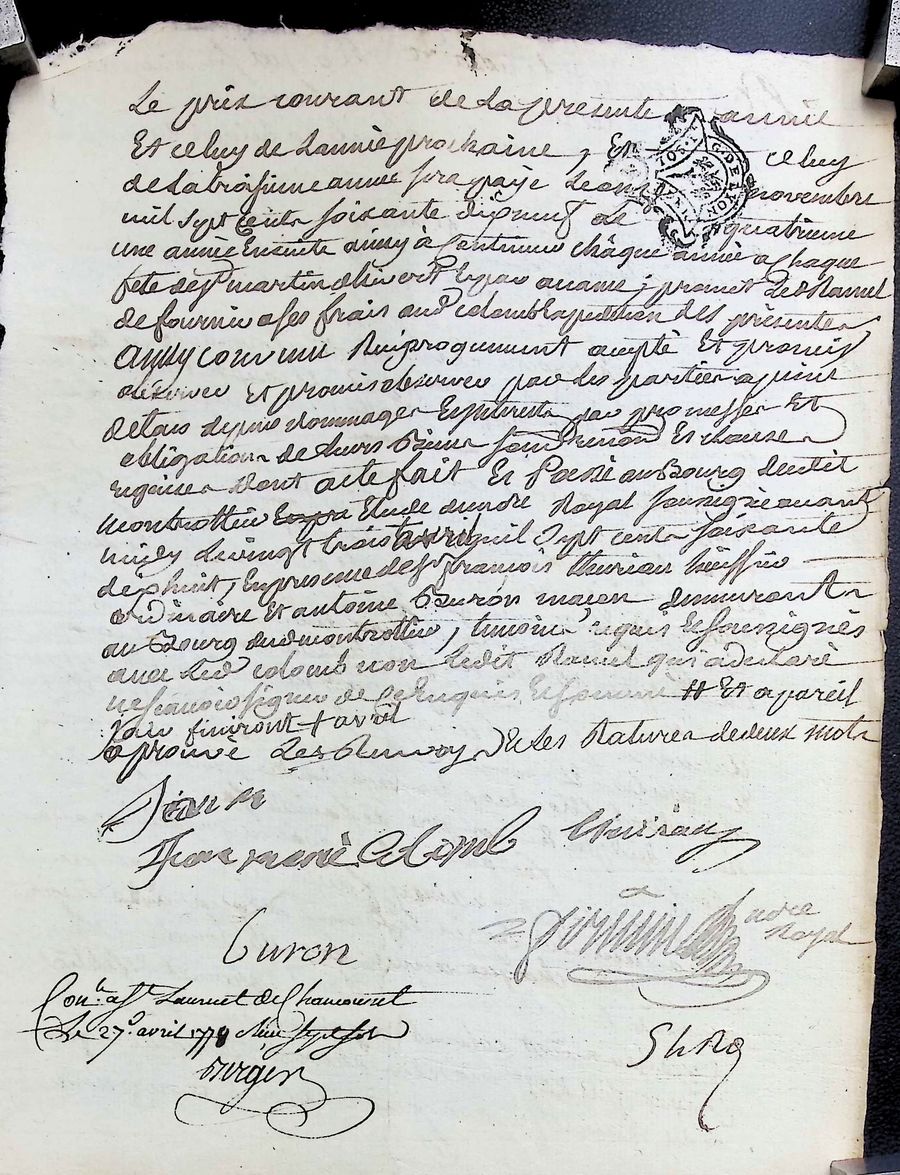 Le prix courant de la presente année
Et celuy de lannée prochaine, Et celuy
de la troisieme année sera payé Le onze novembre
mil sept cents soixante dix neuf de quatrieme
une année Ensuite ainsy à Continuer châque année a chaque
fête de St martin dhivert promet Led Ramel
de fournir a ses frais aud colomb Expedition des presentes
Ainsy convenu Reciproquement accepté Et promis
observer par les parties a peine
de tous depens dommages Et interets par promesses Et
obligations de leurs Biens renond Et clauses
requises dont acte fait Et Passé au Bourg dudit
montrottier Etude dudit no.re Royal soussigné avant
midy Le vingt trois avril mil sept cents soixante
dix huit, En presence de Sr françois thevian huissier
ordinaire Et antoine Buron maçon demeurants
au Bourg dud montrottier, temoins requis Et soussignés
avec Led colomb non Ledit Ramel qui a declaré
ne sçavoir signer de ce Enquis Et sommé # Et a pareil
jour finiront + avril
aprouvé Les Renvoys Et les Ratures de deux mots
Jean marie Colomb
buron
no.re Royal
Con.lé a St Laurent de Chamousset
Le 27.e avril 1778
G. DE LYON